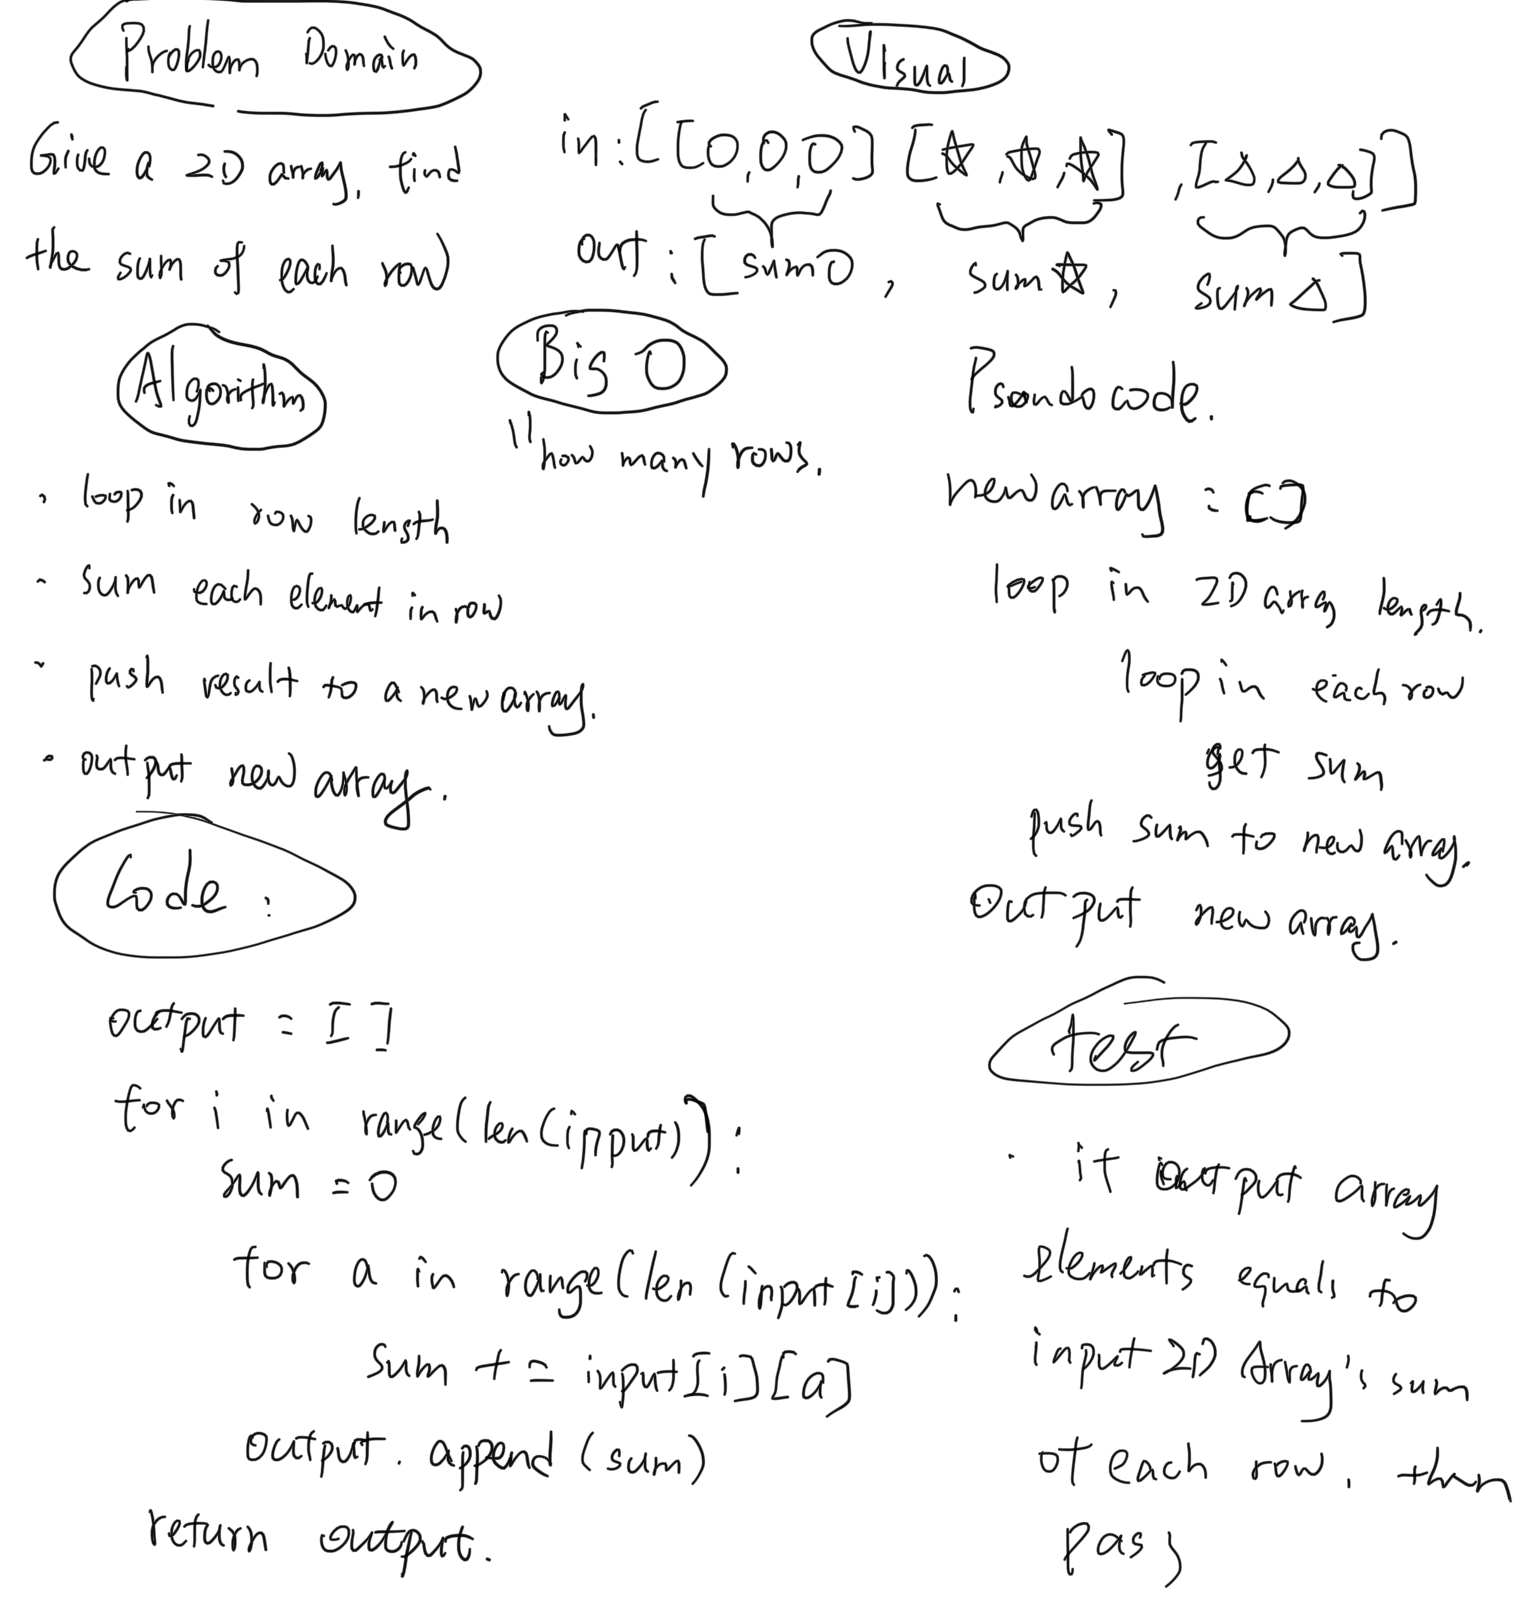 Problem Domain
Give a 2D array, find
the sum of each row
Visual
in: [[O,O,O] [☆,☆,☆] ,[△,△,△]]
out : [sum O , sum ☆, sum △]
Algorithm
· loop in row length
· sum each element in row
· push result to a new array.
· output new array.
Big O
"how many rows.
Psondo code.
new array : []
loop in 2D array length.
loop in each row
get sum
push sum to new array.
Output new array.
Code :
output = []
for i in range(len(input)):
sum = 0
for a in range(len(input[i])):
sum += input[i][a]
output. append (sum)
return output.
test
· if output array
elements equals to
input 2D Array's sum
of each row, then
pass